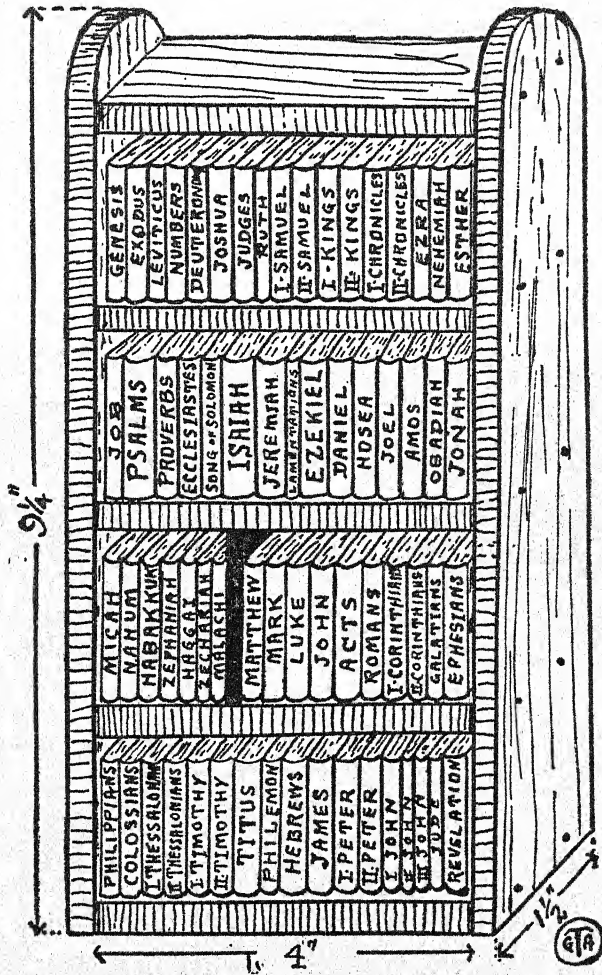 9¼"
GENESIS
EXODUS
LEVITICUS
NUMBERS
DEUTERONOMY
JOSHUA
JUDGES
RUTH
I-SAMUEL
II-SAMUEL
I-KINGS
II-KINGS
I-CHRONICLES
II-CHRONICLES
EZRA
NEHEMIAH
ESTHER
JOB
PSALMS
PROVERBS
ECCLESIASTES
SONG OF SOLOMON
ISAIAH
JEREMIAH
LAMENTATIONS
EZEKIEL
DANIEL
HOSEA
JOEL
AMOS
OBADIAH
JONAH
MICAH
NAHUM
HABAKKUK
ZEPHANIAH
HAGGAI
ZECHARIAH
MALACHI
MATTHEW
MARK
LUKE
JOHN
ACTS
ROMANS
I-CORINTHIANS
II-CORINTHIANS
GALATIANS
EPHESIANS
PHILIPPIANS
COLOSSIANS
I THESSALONIANS
II THESSALONIANS
I-TIMOTHY
II-TIMOTHY
TITUS
PHILEMON
HEBREWS
JAMES
I-PETER
II-PETER
I JOHN
II JOHN
III JOHN
JUDE
REVELATION
4"
1½"
GTA